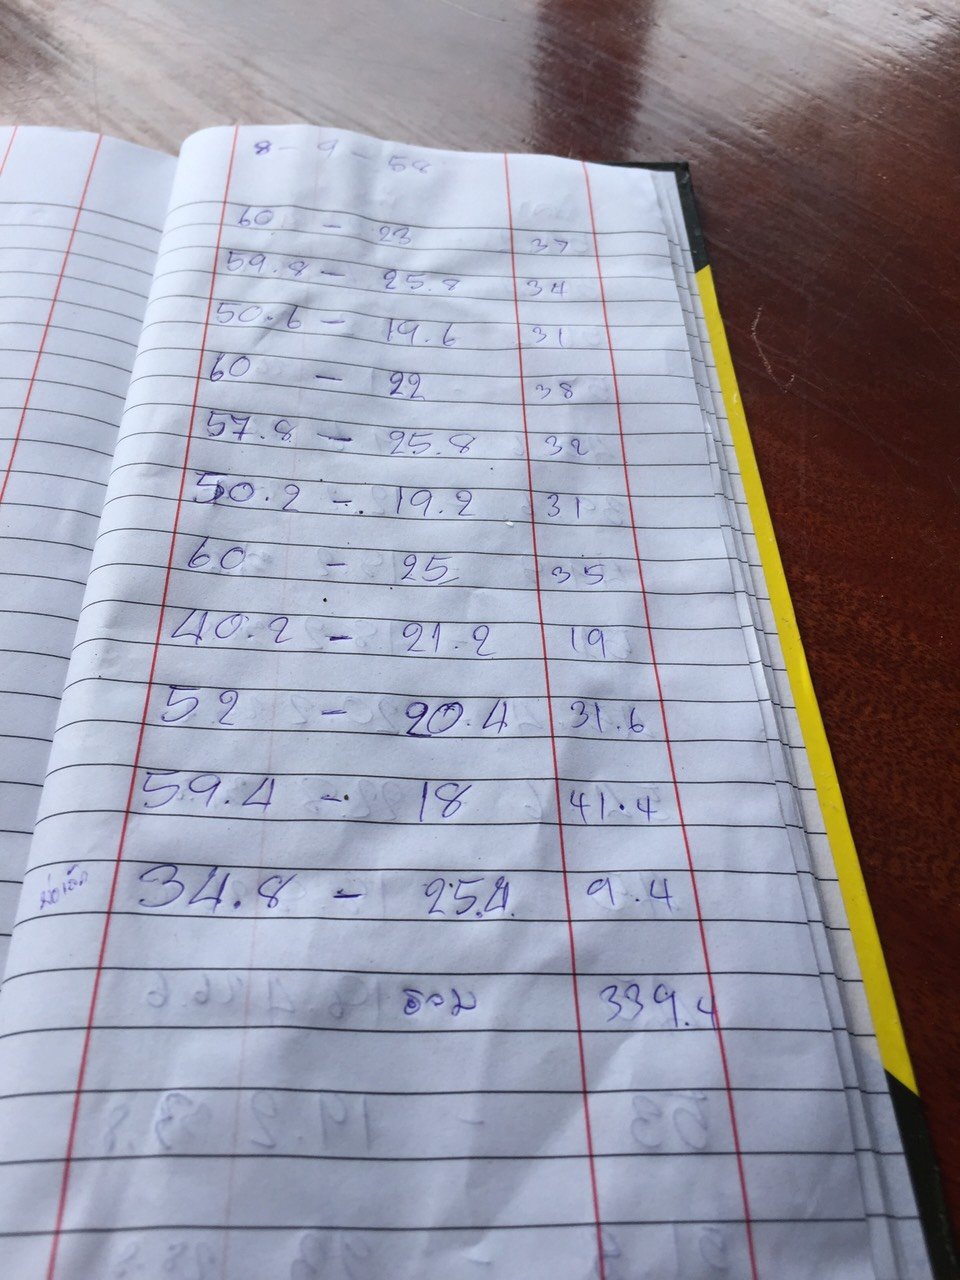 8 - 9 - 58
60 - 23 37
59.8 - 25.8 34
50.6 - 19.6 31
60 - 22 38
57.8 - 25.8 32
50.2 - 19.2 31
60 - 25 35
40.2 - 21.2 19
52 - 20.4 31.6
59.4 - 18 41.4
34.8 - 25.4 9.4
รวม 339.4